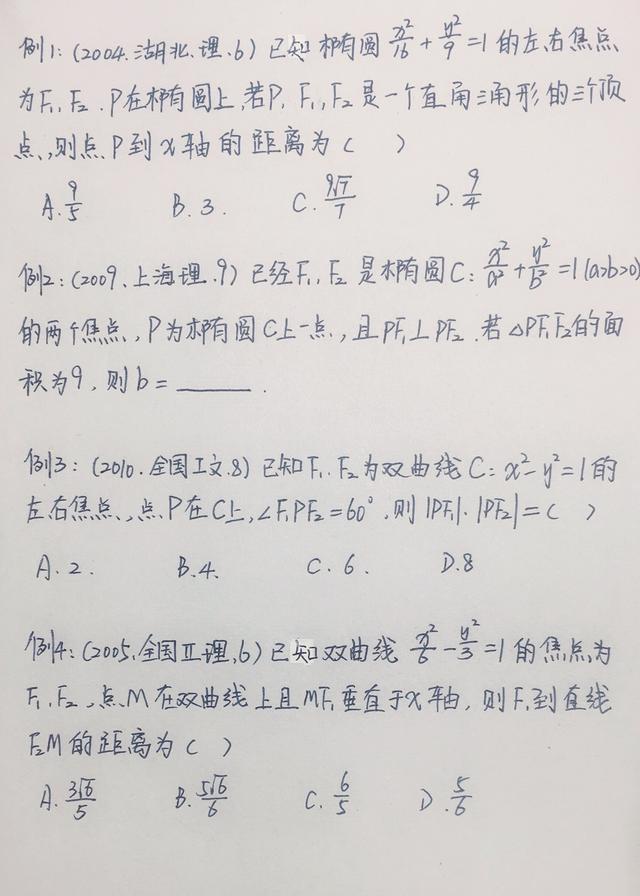 例1:(2004.湖北.理.6)已知椭圆x²/16+y²/9=1的左右焦点
为F₁.F₂.P在椭圆上,若P,F₁,F₂是一个直角三角形的三个顶
点,则点P到x轴的距离为( )
A.9/5 B.3. C.9√7/7 D.9/4
例2:(2009.上海理.9)已经F₁,F₂是椭圆C:x²/a²+y²/b²=1(a>b>0)
的两个焦点,P为椭圆C上一点,且PF₁⊥PF₂.若△PF₁F₂的面
积为9,则b=______.
例3:(2010.全国I文.8)已知F₁.F₂为双曲线C:x²-y²=1的
左右焦点,点P在C上,∠F₁PF₂=60°,则|PF₁|·|PF₂|=( )
A.2. B.4. C.6. D.8
例4:(2005.全国II理.6)已知双曲线x²/6-y²/3=1的焦点为
F₁.F₂,点M在双曲线上且MF₁垂直于x轴,则F₁到直线
F₂M的距离为( )
A.3√6/5 B.5√6/6 C.6/5 D.5/6